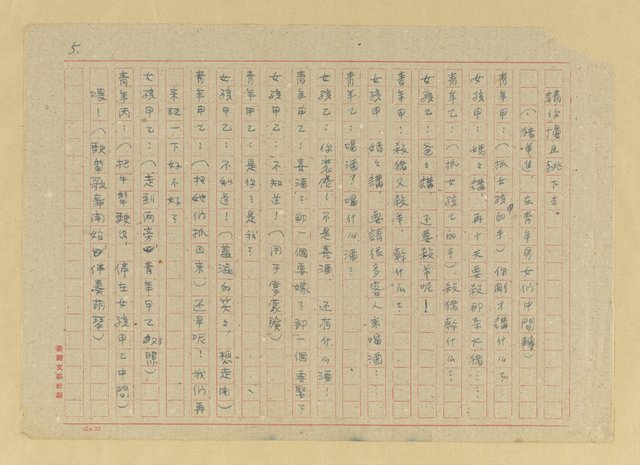 5.
請你慢且跳下去。
(豬群進 在青年男女们中間轉)
青年甲:(抓女孩甲的手)你剛才講什么?
女孩甲:媽々講 再十天要殺那条大豬……
青年乙:(抓女孩乙的手)殺豬幹什么?
女孩乙:爸々講 还要殺羊呢!
青年甲:殺豬又殺羊,幹什么?
女孩甲:媽々講,要請很多客人來喝酒……
青年乙:喝酒?喝什么酒?
女孩乙:你裝傻!不是喜酒,还有什么酒!
青年甲乙:喜酒?那一個要嫁?那一個要娶?
女孩甲乙:不知道!(用手掌蒙臉)
青年甲乙:是你?是我?
女孩甲乙:不知道!(羞澁的笑々,想走開)
青年甲乙:(把她们抓回來)还早呢!我们再
來玩一下好不好?
女孩甲乙:(走到两旁 青年甲乙
青年丙:(把牛犂 停在女孩甲乙中間)
喂!(歌舞開始 伴奏
臺灣文藝社稿
10×20